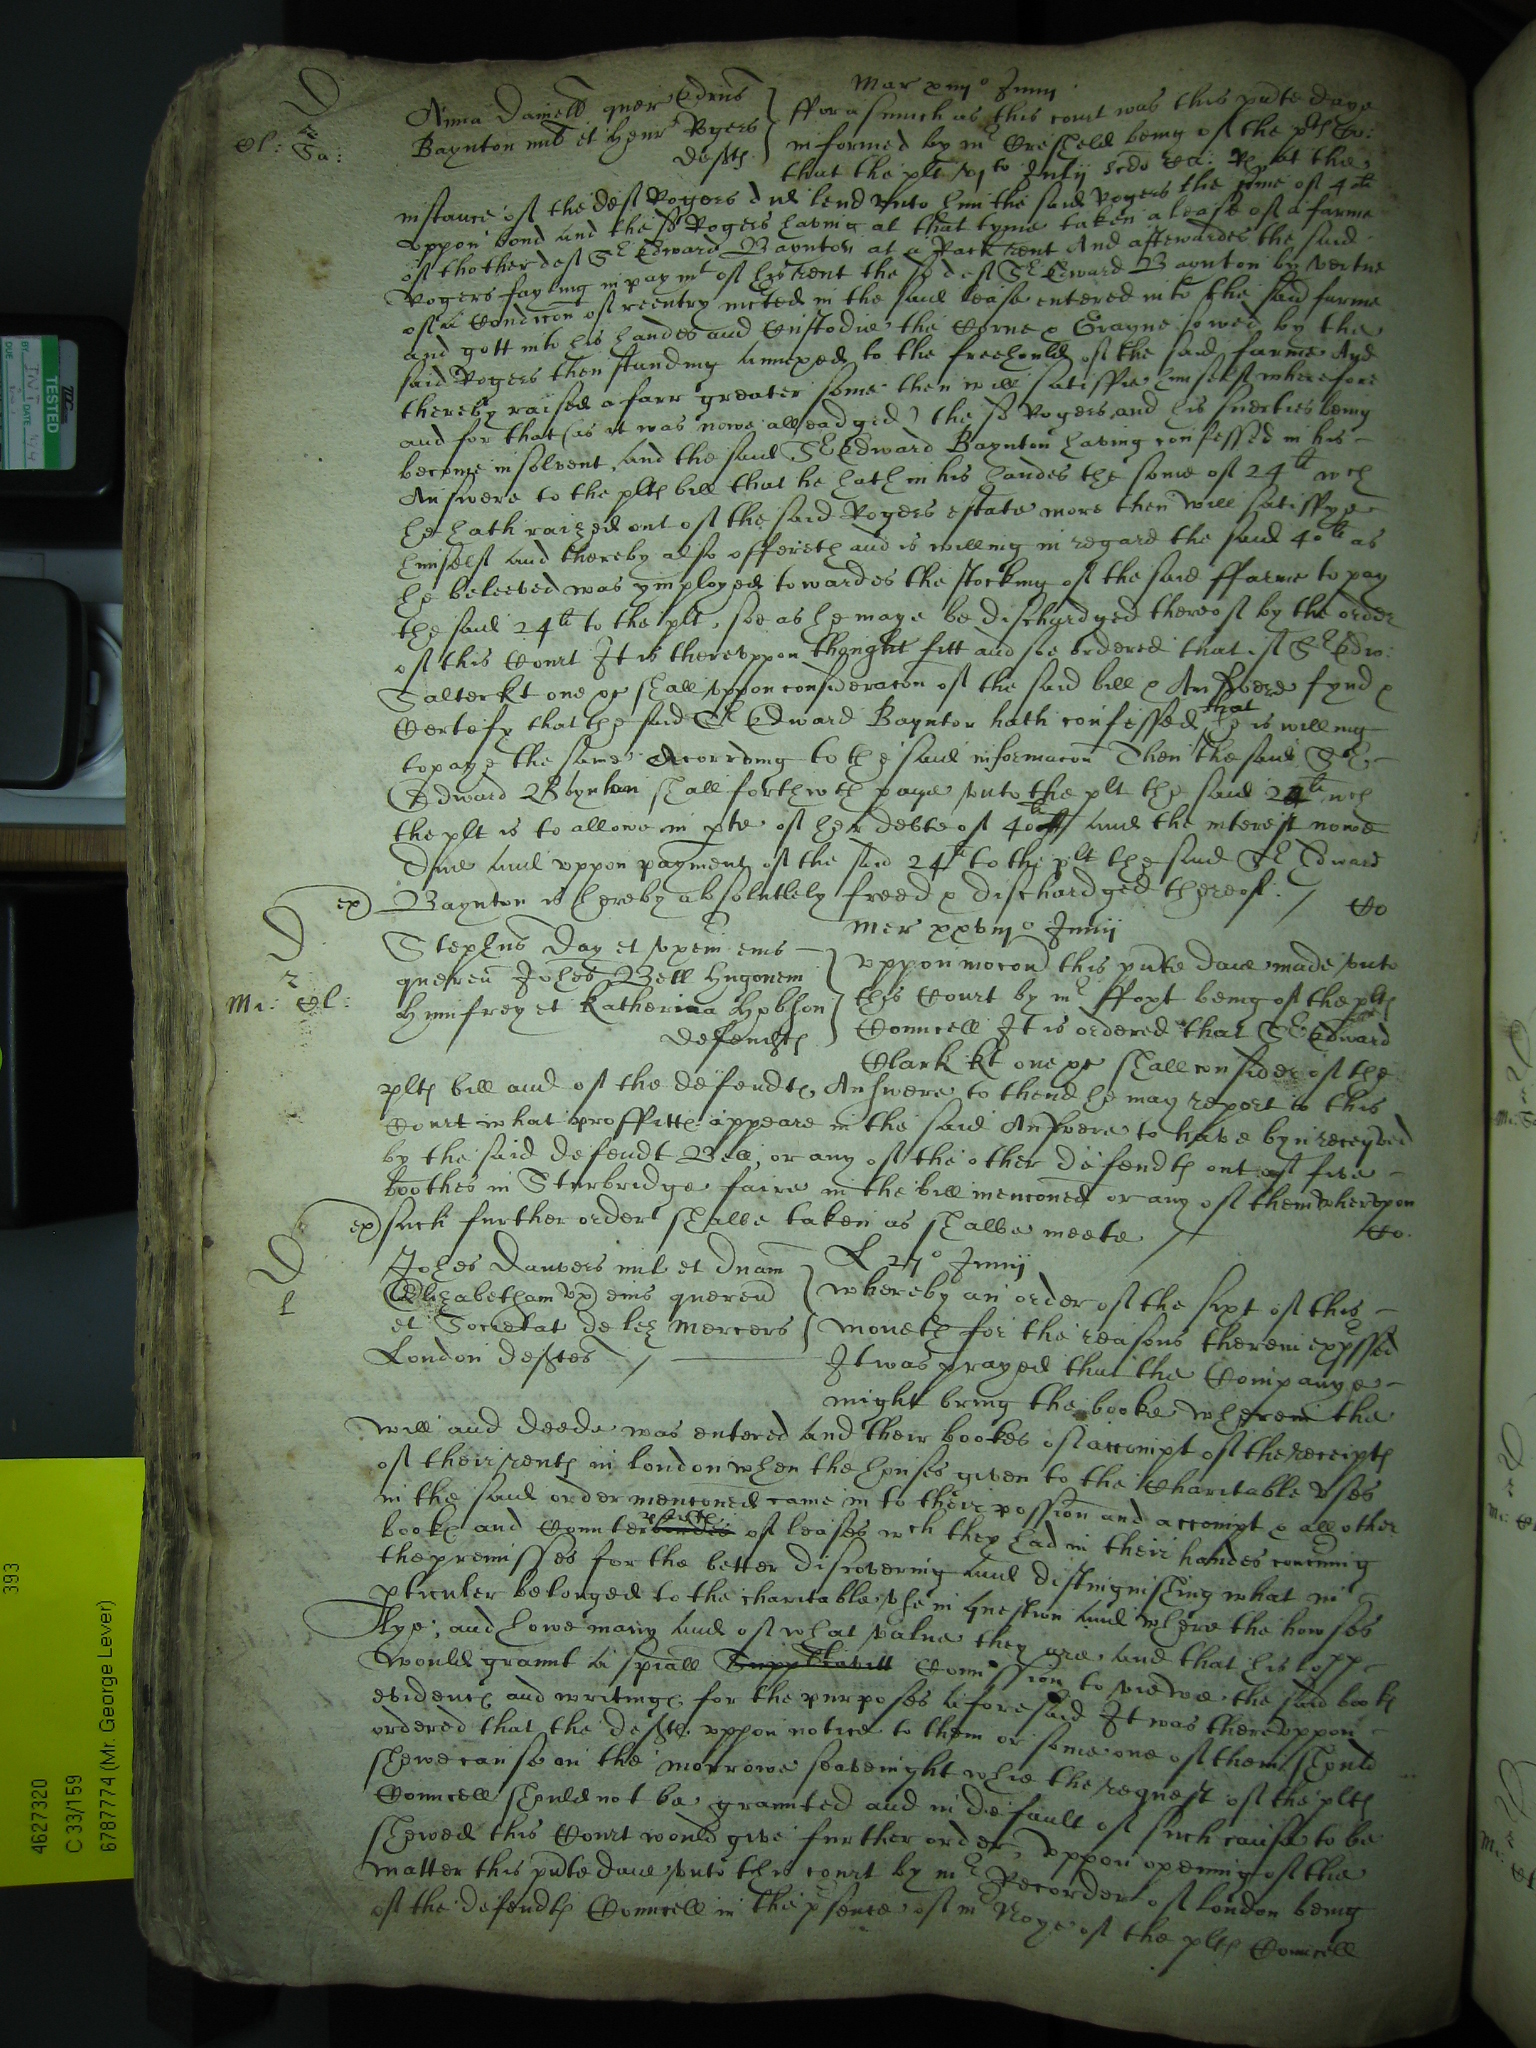 Mar xiij° Junij
D
r
Cl: Sa:
Anna Daniell quer Edrus
Baynton mil et Henr Rogers
defts
fforasmuch as this court was this pnte daye
informed by mr Cresheld being of the plts Co:
that the plt vjto Julij at the
instance of the deft Rogers did lend unto him the said Rogers the some of 40li
uppon bond and the sd Rogers having at that tyme taken a lease of a farme
of thother deft Sr Edward Baynton at a Rack rent And afterwardes the said
Rogers fayling in paymt of his rent the sd deft Sr Edward Baynton by vertue
of a Condicon of reentry in the said lease entered into the said farme
and gott into his handes and Custodie the Corne & Grayne sowed by the
said Rogers then standing annexed to the freehould of the said farme And
thereby raised a farr greater some then will satisfie himself wherefore
and for that (as it was nowe alleadged) the sd Rogers and his suerties being
become insolvent, and the said Sr Edward Baynton having confessed in his
Answere to the plts bill that he hath in his handes the some of 24li wch
he hath raized out of the said Rogers estate more then will satisfye
himself and thereby also offereth and is willing in regard the said 40li as
he beleeved was ymployed towardes the stocking of the said ffarme to pay
the said 24li to the plt, soe as he maye be dischardged thereof by the order
of this Court It is thereuppon thought fitt and soe ordered that if Sr Edw:
Salter kt one &c shall uppon consideracon of the said bill & Answere fynd &
Certefy that the said Sr Edward Baynton hath confessed that he is willing
to paye the same According to the said informacon Then the said Sr
Edward Baynton shall forthwth paye unto the plt the said 24li wch
the plt is to allowe in pte of her debte of 40li and the interest nowe
due and uppon payment of the said 24li to the plt the said Sr Edward
Baynton is hereby absolutely freed & dischardged thereof. / Co
ex
Mer xxviij° Junij
D
r
Mi: Cl:
Stephus Day et uxem eius
queren Johes Bell Hugonem
Humfrey et Katherina Hobson
defendts
Uppon mocon this pnte daie made unto
this Court by mr ffoxt being of the plts
Councell It is ordered that Sr Edward
Clark kt one &c shall consider of the
plts bill and of the defendts Answere to thend he may report to this
Court what proffitts appeare in the said Answere to have byn receyved
by the said defendt Bell, or any of the other defendts out of five
boothes in Sturbridge faire in the bill menconed or any of them whereupon
such further order shalbe taken as shalbe meete / Co.
ex
L 27° Junij
D
l
Johes Danvers mil et Dnam
Elizabetham ux eius queren
et Societat de lez Mercers
London deftes /
Whereby an order of the sixt of this
moneth for the reasons therein expssed
It was prayed that the Companye
might bring the booke wherein the
will and deede was entered and their bookes of accompt of the receipts
of their rents in London when the houses given to the Charitable uses
in the said order menconed came in to their possion and accompt & all other
books and Counter of leases wch they had in their handes concning
the premisses for the better discovering and distinguishing what in
pticuler belonged to the charitable use in question and where the howses
lye, and howe many and of what value they are and that his lopp
would graunt a spiall Comission to viewe the said books
evidence and writings for the purposes aforesaid It was thereuppon
ordered that the defts uppon notice to them or some one of them should
shewe cause on the morrowe seavenight whie the request of the plts
Councell should not be graunted and in default of such cause to be
shewed this Court would give further order, Uppon opening of the
matter this pnte daie unto this court by mr Recorder of London being
of the defendts Councell in the psence of mr Noye of the plts Councell
TESTED
4627320
C 33/159
6787774 (Mr. George Lever)
393